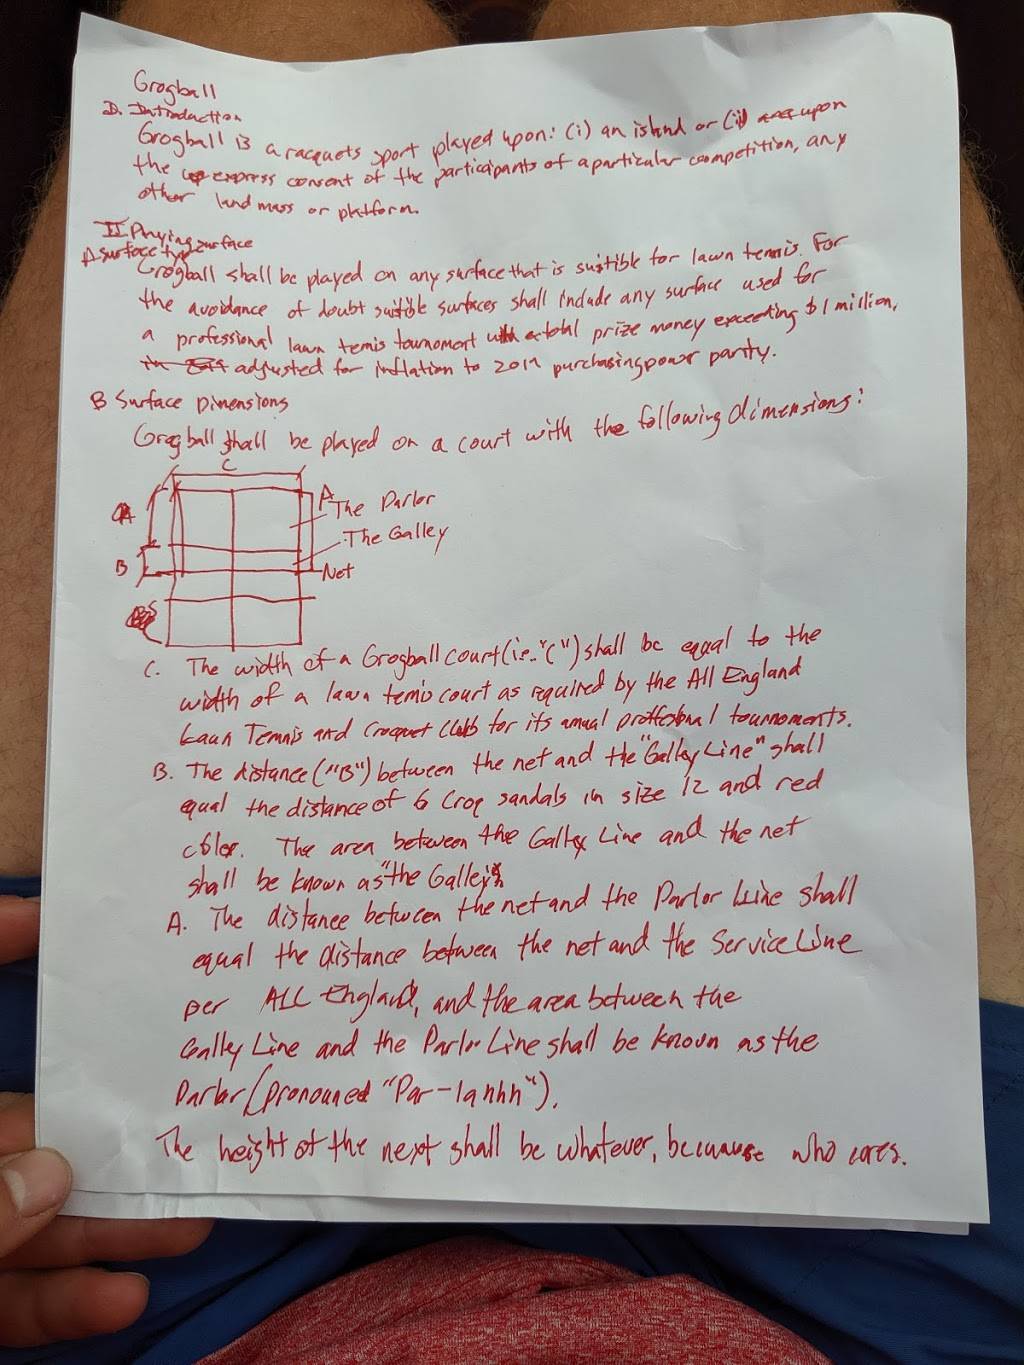 Grogball
I. Introduction
Grogball is a racquets sport played upon: (i) an island or (ii) upon
the express consent of the participants of a particular competition, any
other land mass or platform.
II Playing surface
A surface type
Grogball shall be played on any surface that is suitible for lawn tennis. For
the avoidance of doubt suitible surfaces shall include any surface used for
a professional lawn tennis tournoment with a total prize money exceeding $1 million,
adjusted for inflation to 2017 purchasing power parity.
B Surface Dimensions
Grogball shall be played on a court with the following dimensions:
C
A
A
The Parlor
The Galley
B
Net
C. The width of a Grogball court (i.e. "C") shall be equal to the
width of a lawn tennis court as required by the All England
Laun Tennis and Croquet Club for its annual proffesional tournoments.
B. The distance ("B") between the net and the "Galley Line" shall
equal the distance of 6 Croq sandals in size 12 and red
color. The area between the Galley Line and the net
shall be known as "the Galley".
A. The distance between the net and the Parlor Line shall
equal the distance between the net and the Service Line
per ALL England, and the area between the
Galley Line and the Parlor Line shall be known as the
Parlor (pronouned "Par-lahhh").
The height of the next shall be whatever, becuause who cares.